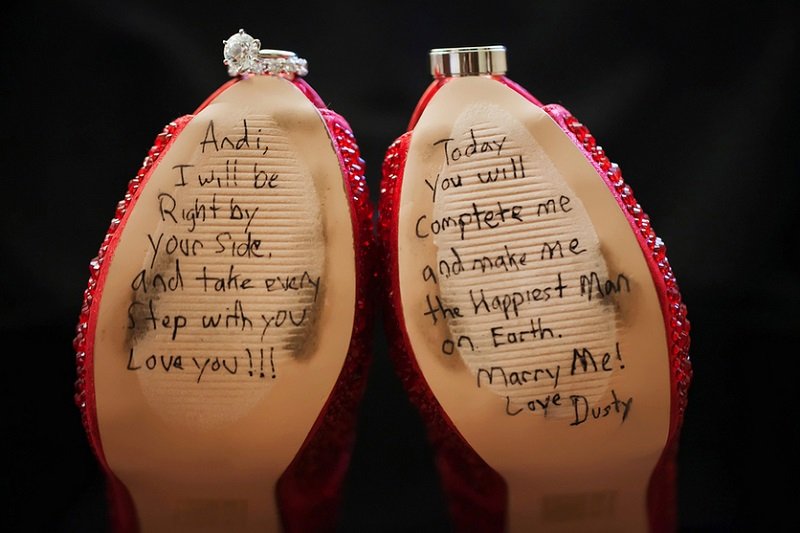 Andi,
I will be
Right by
your side.
and take every
step with you
Love you!!!
Today
you will
Complete me
and make me
the Happiest Man
on Earth.
Marry Me!
Love Dusty